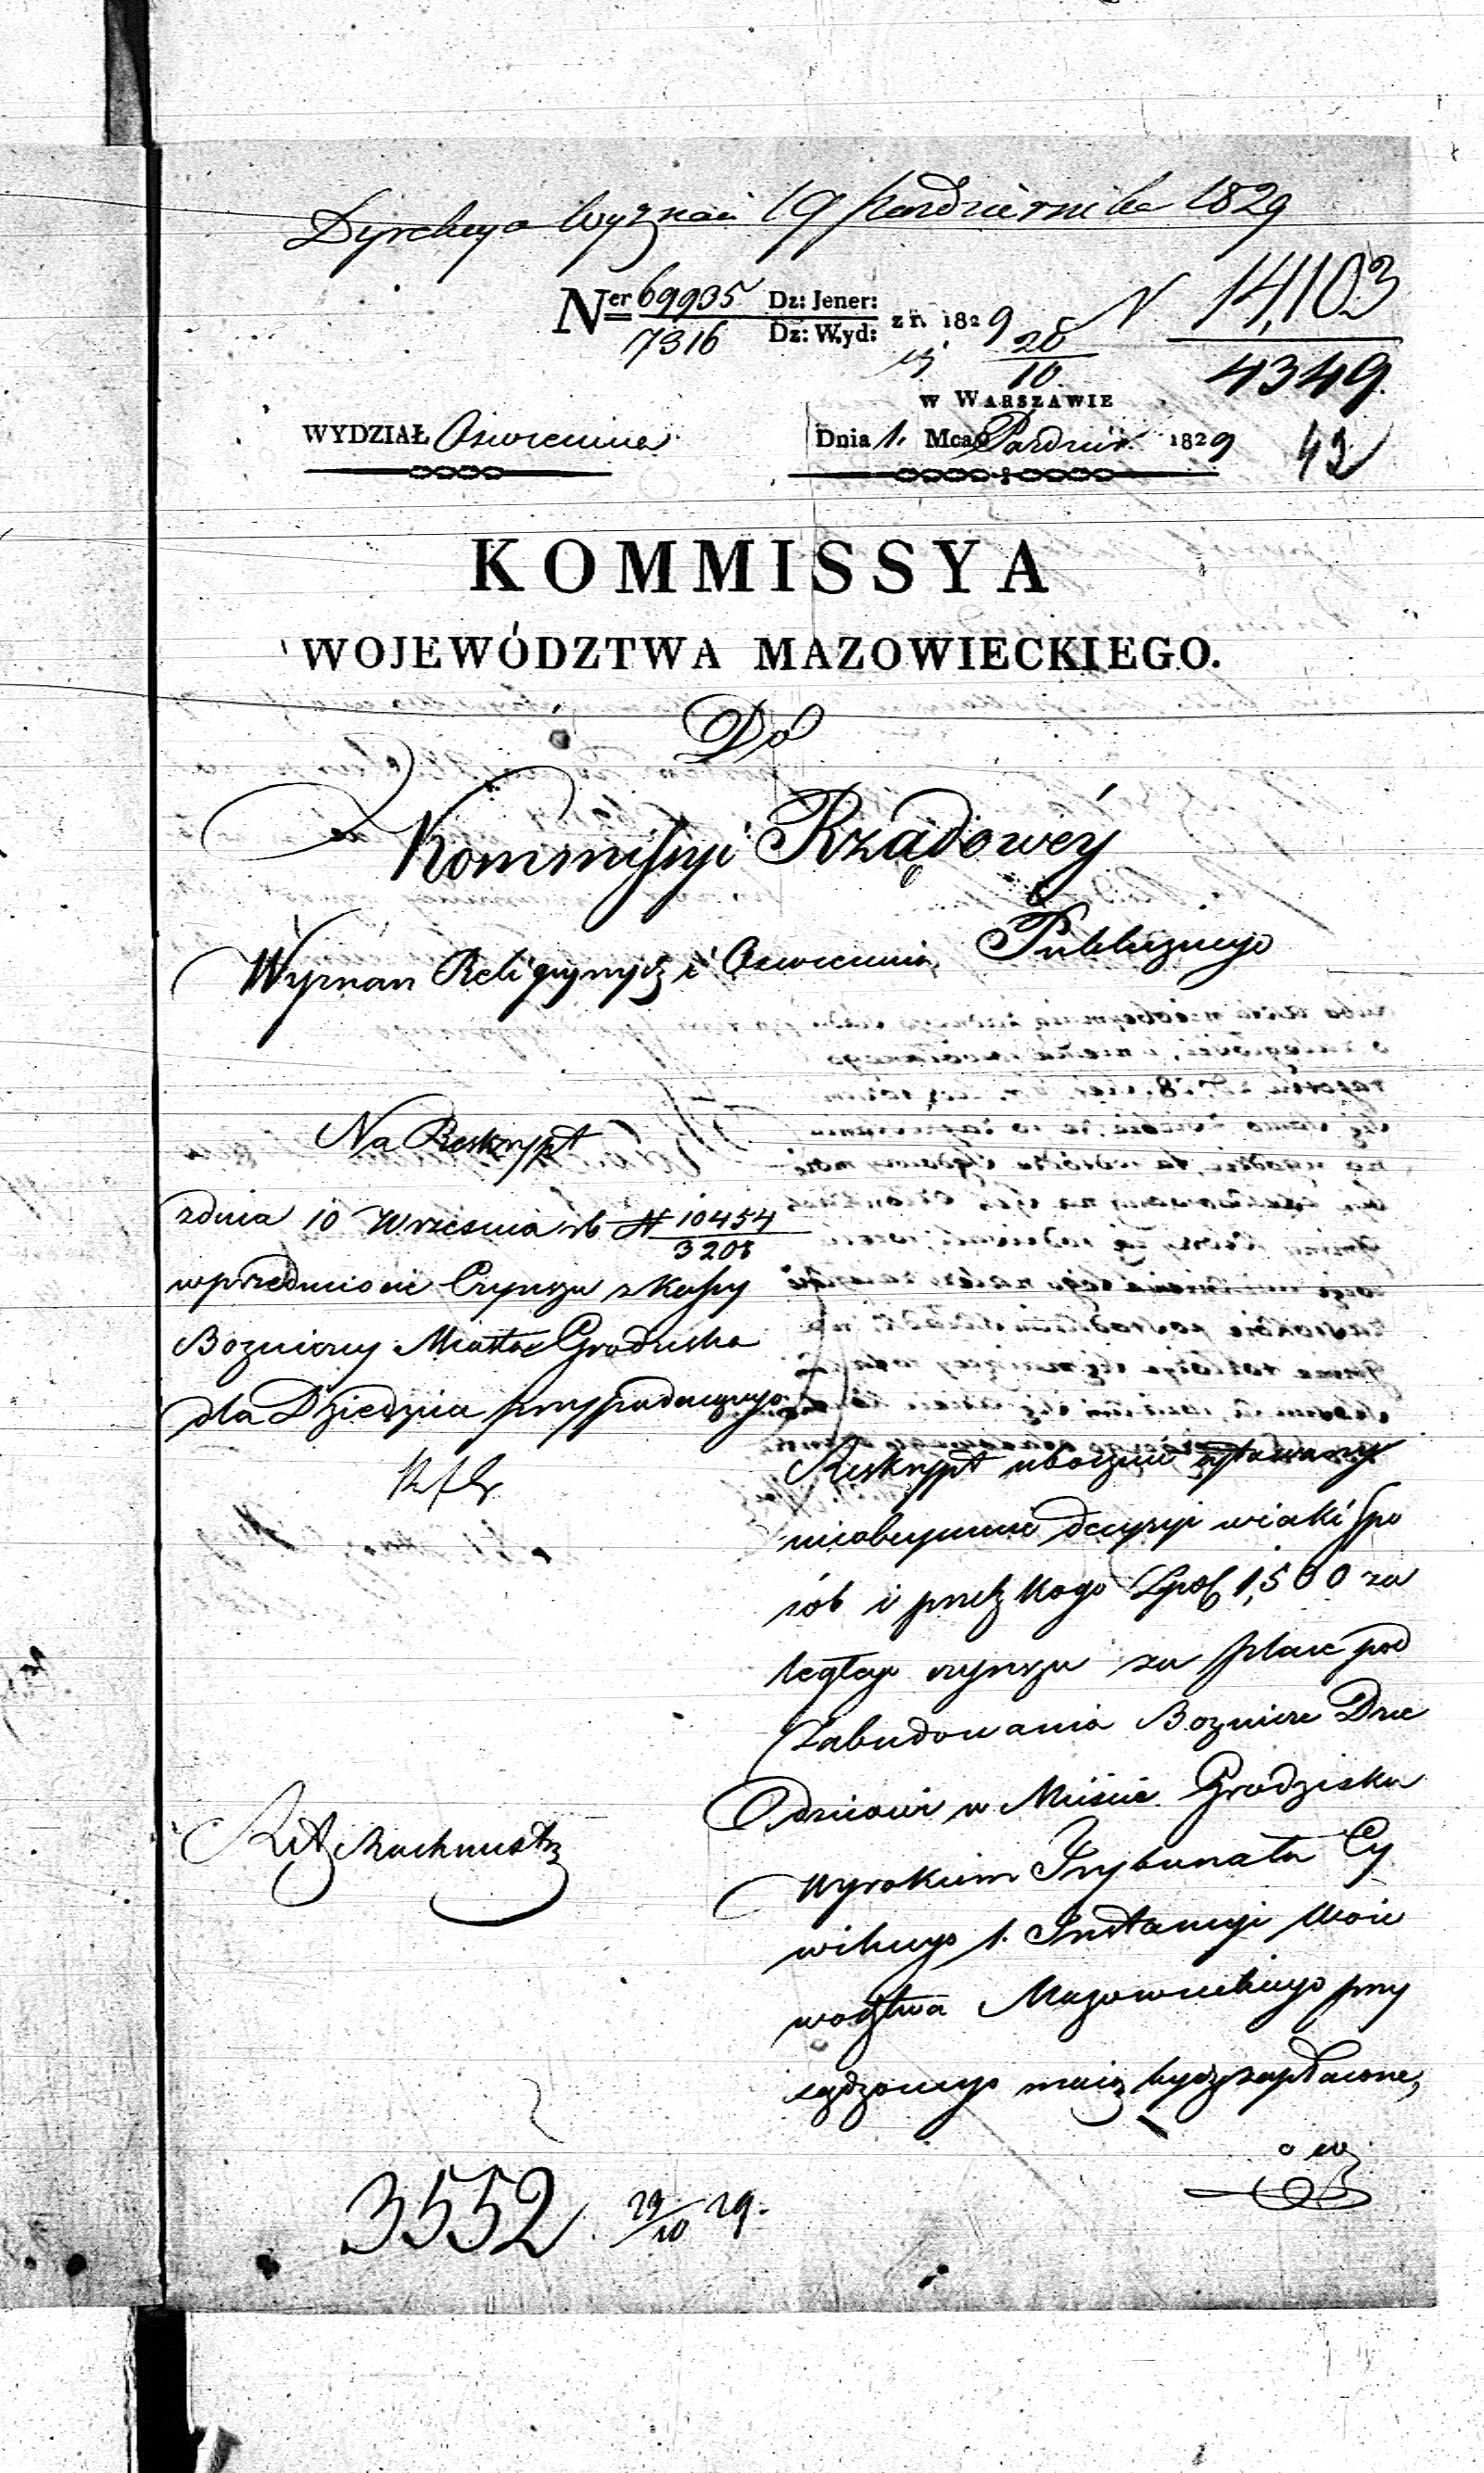 Dyrekcya Wyznań 19 Pazdziernika 1829
N 14,103
4349.
Ner 69935 Dz: Jener:
7316 Dz: Wyd: z r. 1829
20
10.
w Warszawie
WYDZIAŁ Oswiecenia
Dnia 1. Mca Pazdzier. 1829
42
KOMMISSYA
WOJEWÓDZTWA MAZOWIECKIEGO.
Do
Kommissyi Rządowéy
Wyznan Religiynych i Oswiecenia Publicznego
Na Reskrypt
z dnia 10 Wrzesnia rb N 10454
3208
w przedmiocie Czynszu z Kassy
Boznicznej Miasta Grodziska
dla Dziedzica przypadaiącego
Reskrypt ubocznie cytowany
nieobeymuie decyzyi w iaki spo
sób i przez kogo Złpol 1,500 za
ległego czynszu za place pod
Zabudowania Boznicze Dzie
dzicowi w Miescie Grodzisku
wyrokiem Trybunału Cy
wilnego 1. Instancyi Woie
wodztwa Mazowieckiego przy
sądzonego maią bydz zapłacone,
3552. 29/10 29.